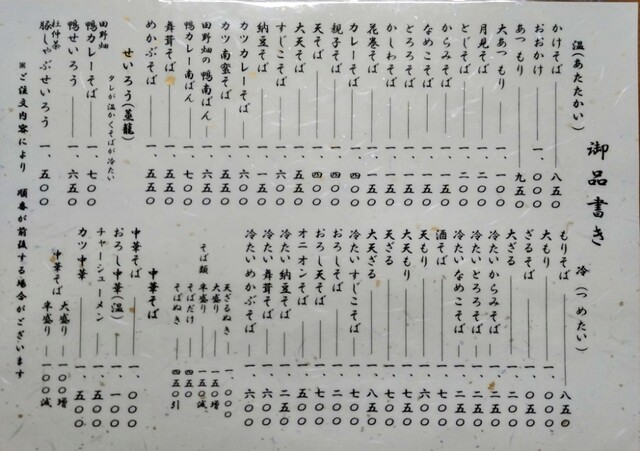 御品書き
温(あたたかい)
かけそば 八五〇
おおかけ 一、〇〇〇
あつもり 九五〇
大あつもり 一、一〇〇
月見そば
とじそば 一、二〇〇
からみそば
なめこそば
とろろそば
かしわそば
花巻そば
カレーそば
親子そば 一、四〇〇
天そば 一、四〇〇
大天そば
すじこそば
納豆そば 一、一五〇
カツカレーそば 一、六〇〇
カツ南蛮そば
田野畑の鴨南ばん
鴨カレー南ばん 一、七〇〇
舞茸そば 一、五五〇
めかぶそば 一、五五〇
せいろう(蒸籠)
タレが温かくそばが冷たい
田野畑
鴨カレーそば 一、七〇〇
鴨せいろう 一、六五〇
杜仲茶
豚しゃぶせいろう 一、五〇〇
冷(つめたい)
もりそば 八五〇
大もり 一、〇〇〇
ざるそば
大ざる
冷たいからみそば
冷たいとろろそば
冷たいなめこそば
酒そば
天もり
大天もり
天ざる
大天ざる 一、八五〇
冷たいすじこそば
おろしそば
おろし天そば
オニオンそば
冷たい納豆そば 一、二五〇
冷たい舞茸そば 一、六〇〇
冷たいめかぶそば 一、六〇〇
天ざるぬき 一、〇〇〇
そば類 大盛り 一五〇増
半盛り 一五〇減
そばだけ 四五〇
そばぬき 四五〇引
中華そば
中華そば 一、〇〇〇
おろし中華(温) 一、一〇〇
チャーシューメン 一、五〇〇
カツ中華 一、五〇〇
中華そば 大盛り 一〇〇増
半盛り 一〇〇減
※ご注文内容により 順番が前後する場合がございます